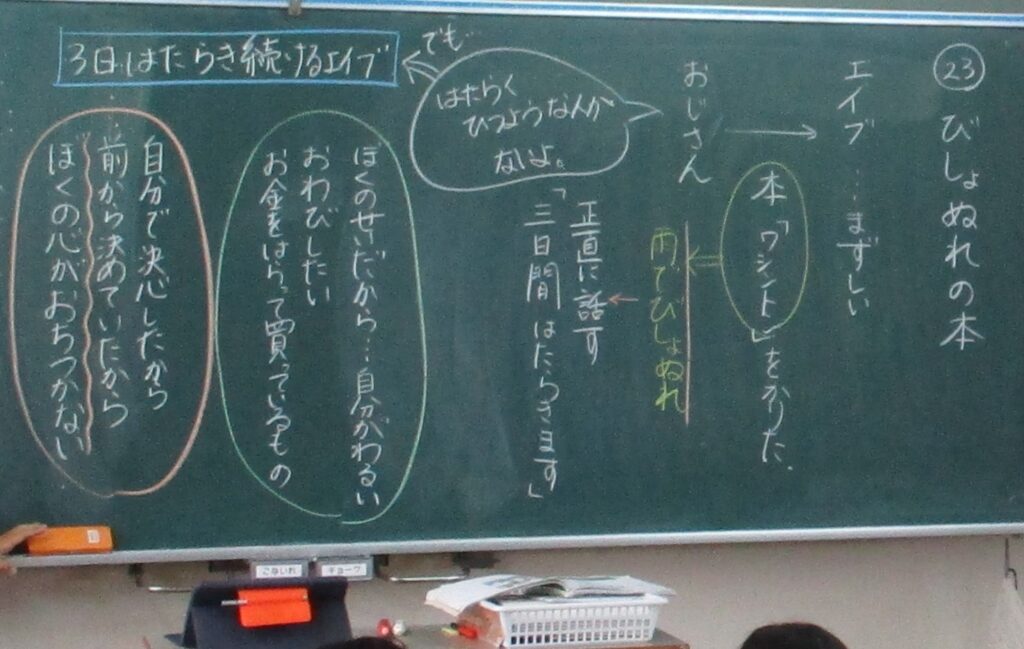 ㉓ びしょぬれの本
エイブ…まずしい
おじさん
本「ワシントン」をかりた。
雨でびしょぬれ
正直に話す
「三日間はたらきます」
はたらく
ひつようなんか
ないよ。
でも…
3日はたらき続けるエイブ
ぼくのせいだから…自分がわるい
おわびしたい
お金をはらって買っているもの
自分で決心したから
前から決めていたから
ぼくの心がおちつかない
こないれ
チョーク